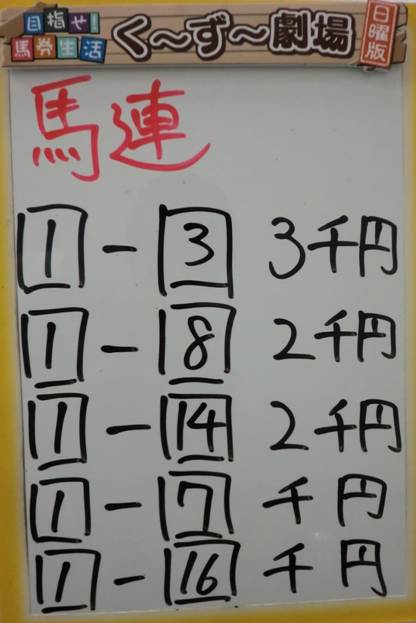 目指せ!
馬券生活
く～ず～劇場
日曜版
馬連
1 - 3 3千円
1 - 8 2千円
1 - 14 2千円
1 - 7 千円
1 - 16 千円